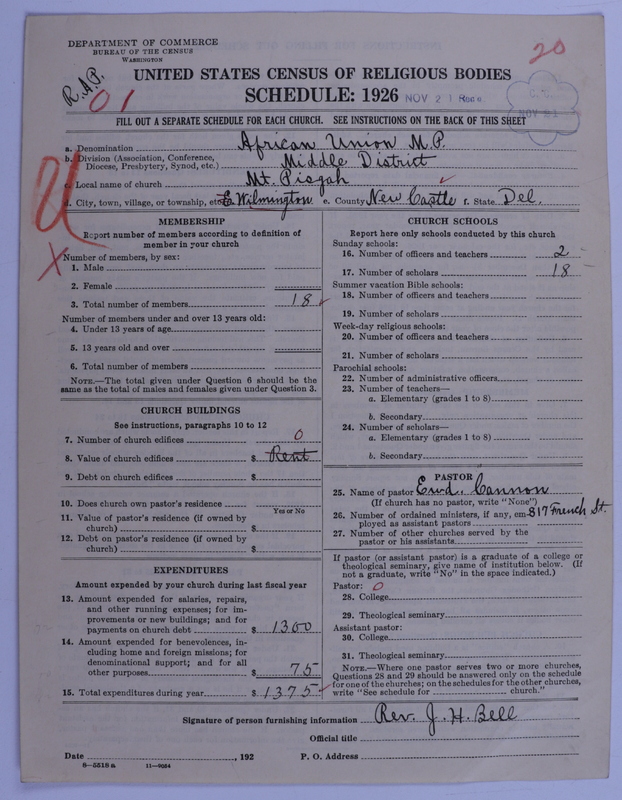 DEPARTMENT OF COMMERCE
BUREAU OF THE CENSUS
WASHINGTON
R.A.P.
01
20
UNITED STATES CENSUS OF RELIGIOUS BODIES
SCHEDULE: 1926
NOV 21 Recd
NOV 23
FILL OUT A SEPARATE SCHEDULE FOR EACH CHURCH. SEE INSTRUCTIONS ON THE BACK OF THIS SHEET
a. Denomination African Union M.P.
b. Division (Association, Conference, Diocese, Presbytery, Synod, etc.) Middle District
c. Local name of church Mt. Pisgah
d. City, town, village, or township, etc. E. Wilmington e. County New Castle f. State Del.
MEMBERSHIP
Report number of members according to definition of
member in your church
X
Number of members, by sex:
1. Male
2. Female
3. Total number of members 18
Number of members under and over 13 years old:
4. Under 13 years of age
5. 13 years old and over
6. Total number of members
NOTE.—The total given under Question 6 should be the
same as the total of males and females given under Question 3.
CHURCH BUILDINGS
See instructions, paragraphs 10 to 12
7. Number of church edifices 0
8. Value of church edifices $ Rent
9. Debt on church edifices $
10. Does church own pastor's residence
Yes or No
11. Value of pastor's residence (if owned by
church) $
12. Debt on pastor's residence (if owned by
church) $
EXPENDITURES
Amount expended by your church during last fiscal year
13. Amount expended for salaries, repairs,
and other running expenses; for im-
provements or new buildings; and for
payments on church debt $ 1300
14. Amount expended for benevolences, in-
cluding home and foreign missions; for
denominational support; and for all
other purposes $ 75
15. Total expenditures during year $ 1375
CHURCH SCHOOLS
Report here only schools conducted by this church
Sunday schools:
16. Number of officers and teachers 2
17. Number of scholars 18
Summer vacation Bible schools:
18. Number of officers and teachers
19. Number of scholars
Week-day religious schools:
20. Number of officers and teachers
21. Number of scholars
Parochial schools:
22. Number of administrative officers
23. Number of teachers—
a. Elementary (grades 1 to 8)
b. Secondary
24. Number of scholars—
a. Elementary (grades 1 to 8)
b. Secondary
PASTOR
25. Name of pastor Cannon
(If church has no pastor, write "None")
26. Number of ordained ministers, if any, em- 817 French St.
ployed as assistant pastors
27. Number of other churches served by the
pastor or his assistants
If pastor (or assistant pastor) is a graduate of a college or
theological seminary, give name of institution below. (If
not a graduate, write "No" in the space indicated.)
Pastor: 0
28. College
29. Theological seminary
Assistant pastor:
30. College
31. Theological seminary
NOTE.—Where one pastor serves two or more churches,
Questions 28 and 29 should be answered only on the schedule
for one of the churches; on the schedules for the other churches,
write "See schedule for church."
Signature of person furnishing information Rev. J. H. Bell
Official title
Date , 192 P. O. Address
8—5518 a 11—9054